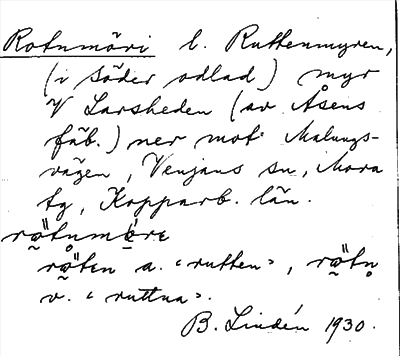 Rotnmöri l. Ruttenmyren,
(i söder odlad) myr
V Larsheden (av Åsens
fäb.) ner mot Malungs-
vägen, Venjans sn, Mora
tg, Kopparb. län.
a. "rutten",
v. "ruttna".
B. Lindén 1930.